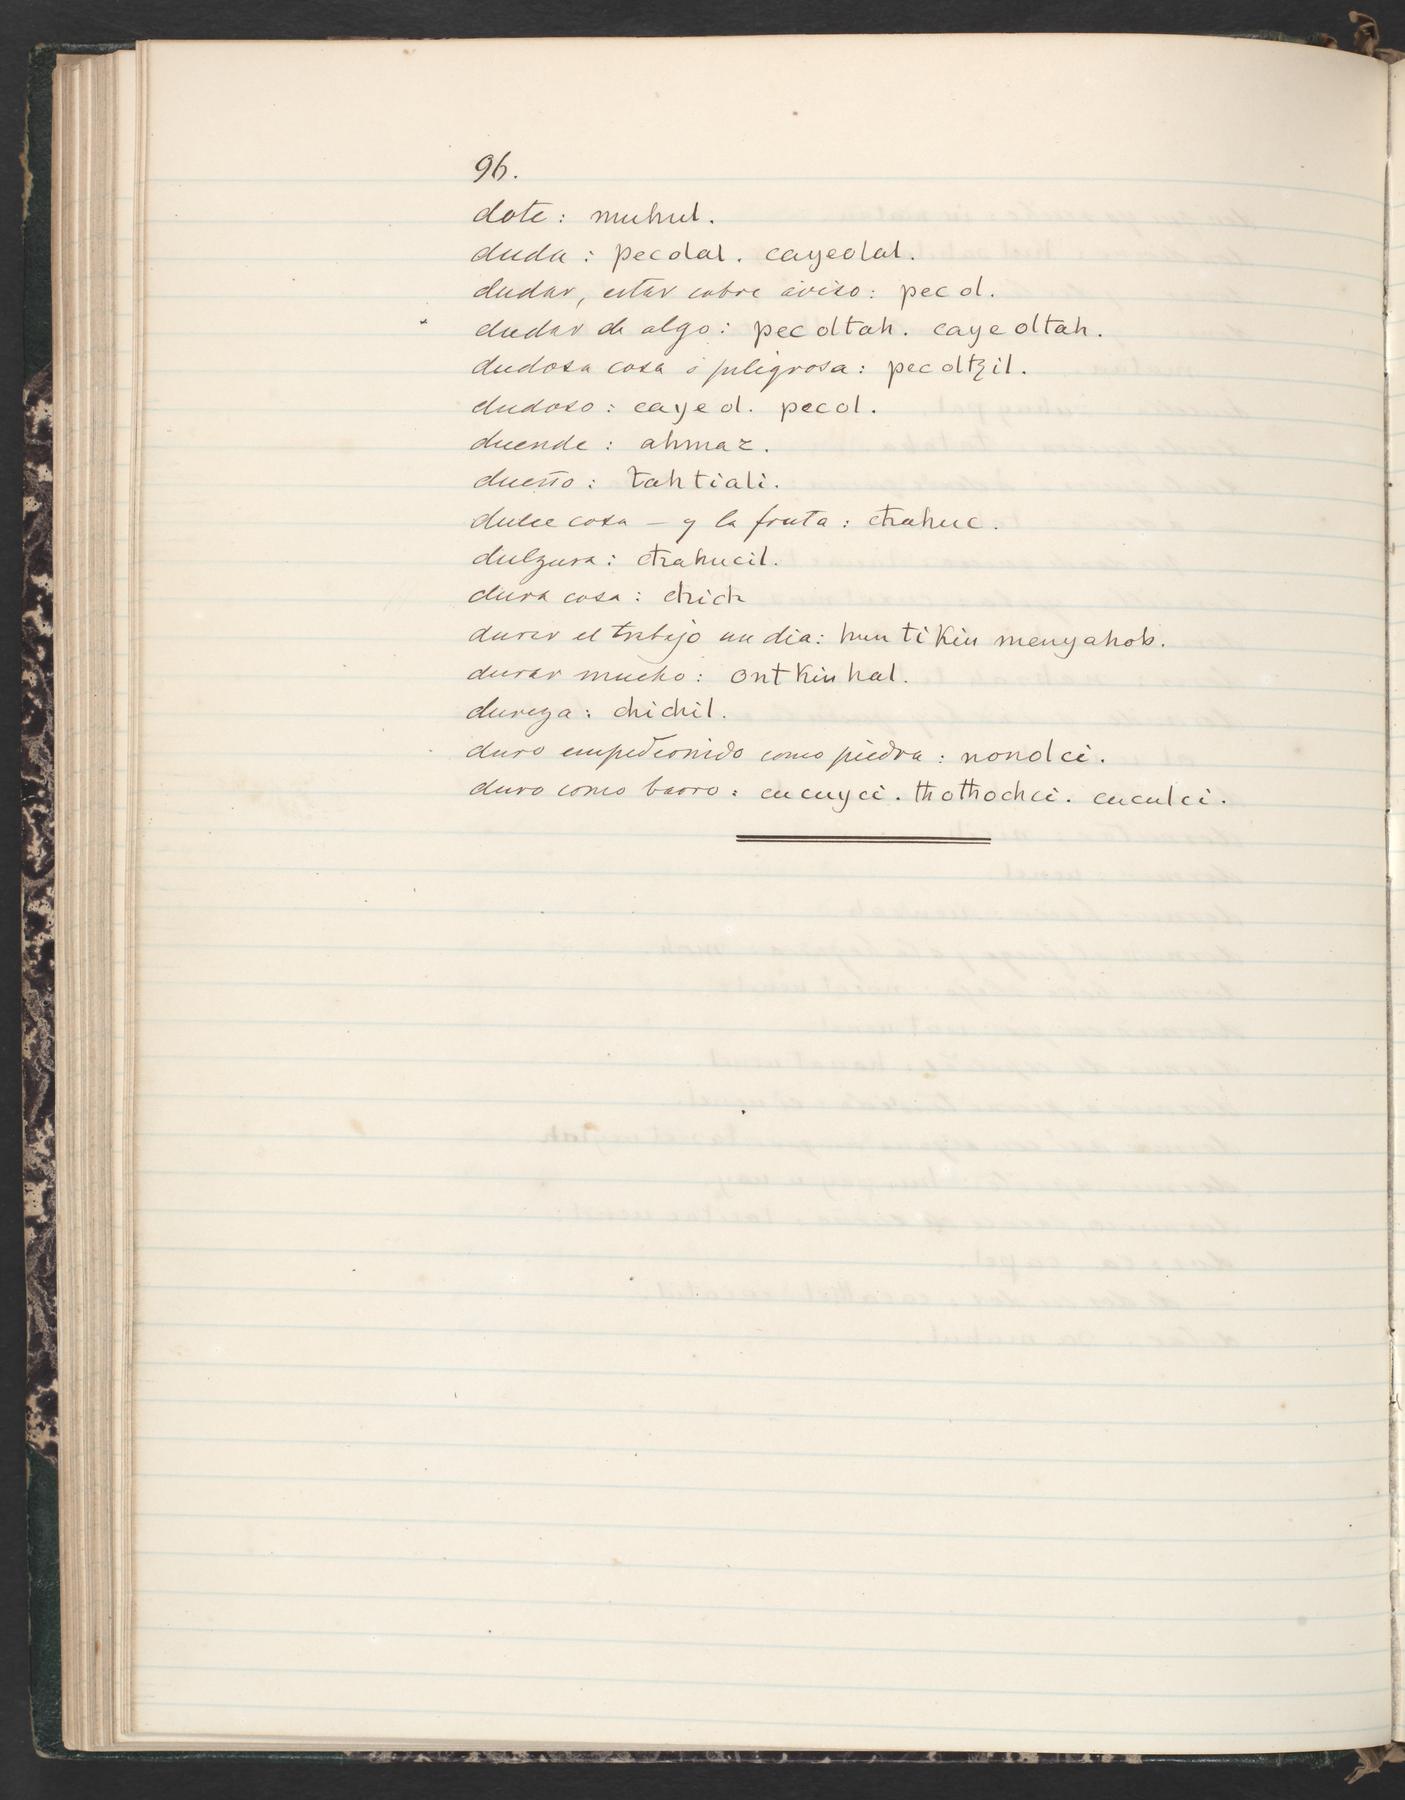 96.
dote: muhul.
duda: pecolal. cayeolal.
dudar, estar sobre aviso: pec ol.
dudar de algo: pec oltah. caye oltah.
dudosa cosa ó peligrosa: pec oltzil.
dudoso: caye ol. pecol.
duende: ahmaz.
dueño: tahtiali.
dulce cosa – y la fruta: chahuc.
dulzura: chahucil.
dura cosa: chich
durar el trabajo un dia: hun ti Kin menyahob.
durar mucho: ont Kin hal.
dureza: chichil.
duro empedernido como piedra: nonolci.
duro como barro: cucuyci. thothochci. cuculci.